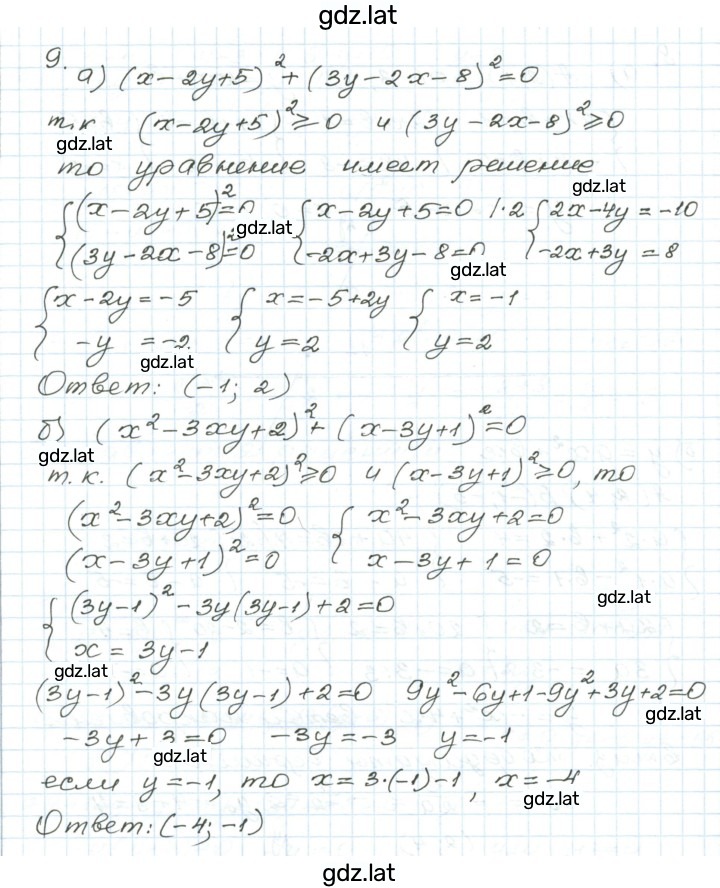 gdz.lat
9.
а) (x-2y+5)²+(3y-2x-8)²=0
т.к (x-2y+5)²≥0 и (3y-2x-8)²≥0
gdz.lat
то уравнение имеет решение
gdz.lat
{(x-2y+5)²=0 {x-2y+5=0 |·2 {2x-4y=-10
gdz.lat
{(3y-2x-8)²=0 {-2x+3y-8=0 {-2x+3y=8
gdz.lat
{x-2y=-5 {x=-5+2y {x=-1
{-y=-2 {y=2 {y=2
gdz.lat
Ответ: (-1; 2)
б) (x²-3xy+2)²+(x-3y+1)²=0
gdz.lat
т.к. (x²-3xy+2)²≥0 и (x-3y+1)²≥0, то
(x²-3xy+2)²=0 {x²-3xy+2=0
(x-3y+1)²=0 {x-3y+1=0
{(3y-1)²-3y(3y-1)+2=0
gdz.lat
{x=3y-1
gdz.lat
(3y-1)²-3y(3y-1)+2=0 9y²-6y+1-9y²+3y+2=0
gdz.lat
-3y+3=0 -3y=-3 y=-1
gdz.lat
если y=-1, то x=3·(-1)-1, x=-4
gdz.lat
Ответ: (-4; -1)
gdz.lat